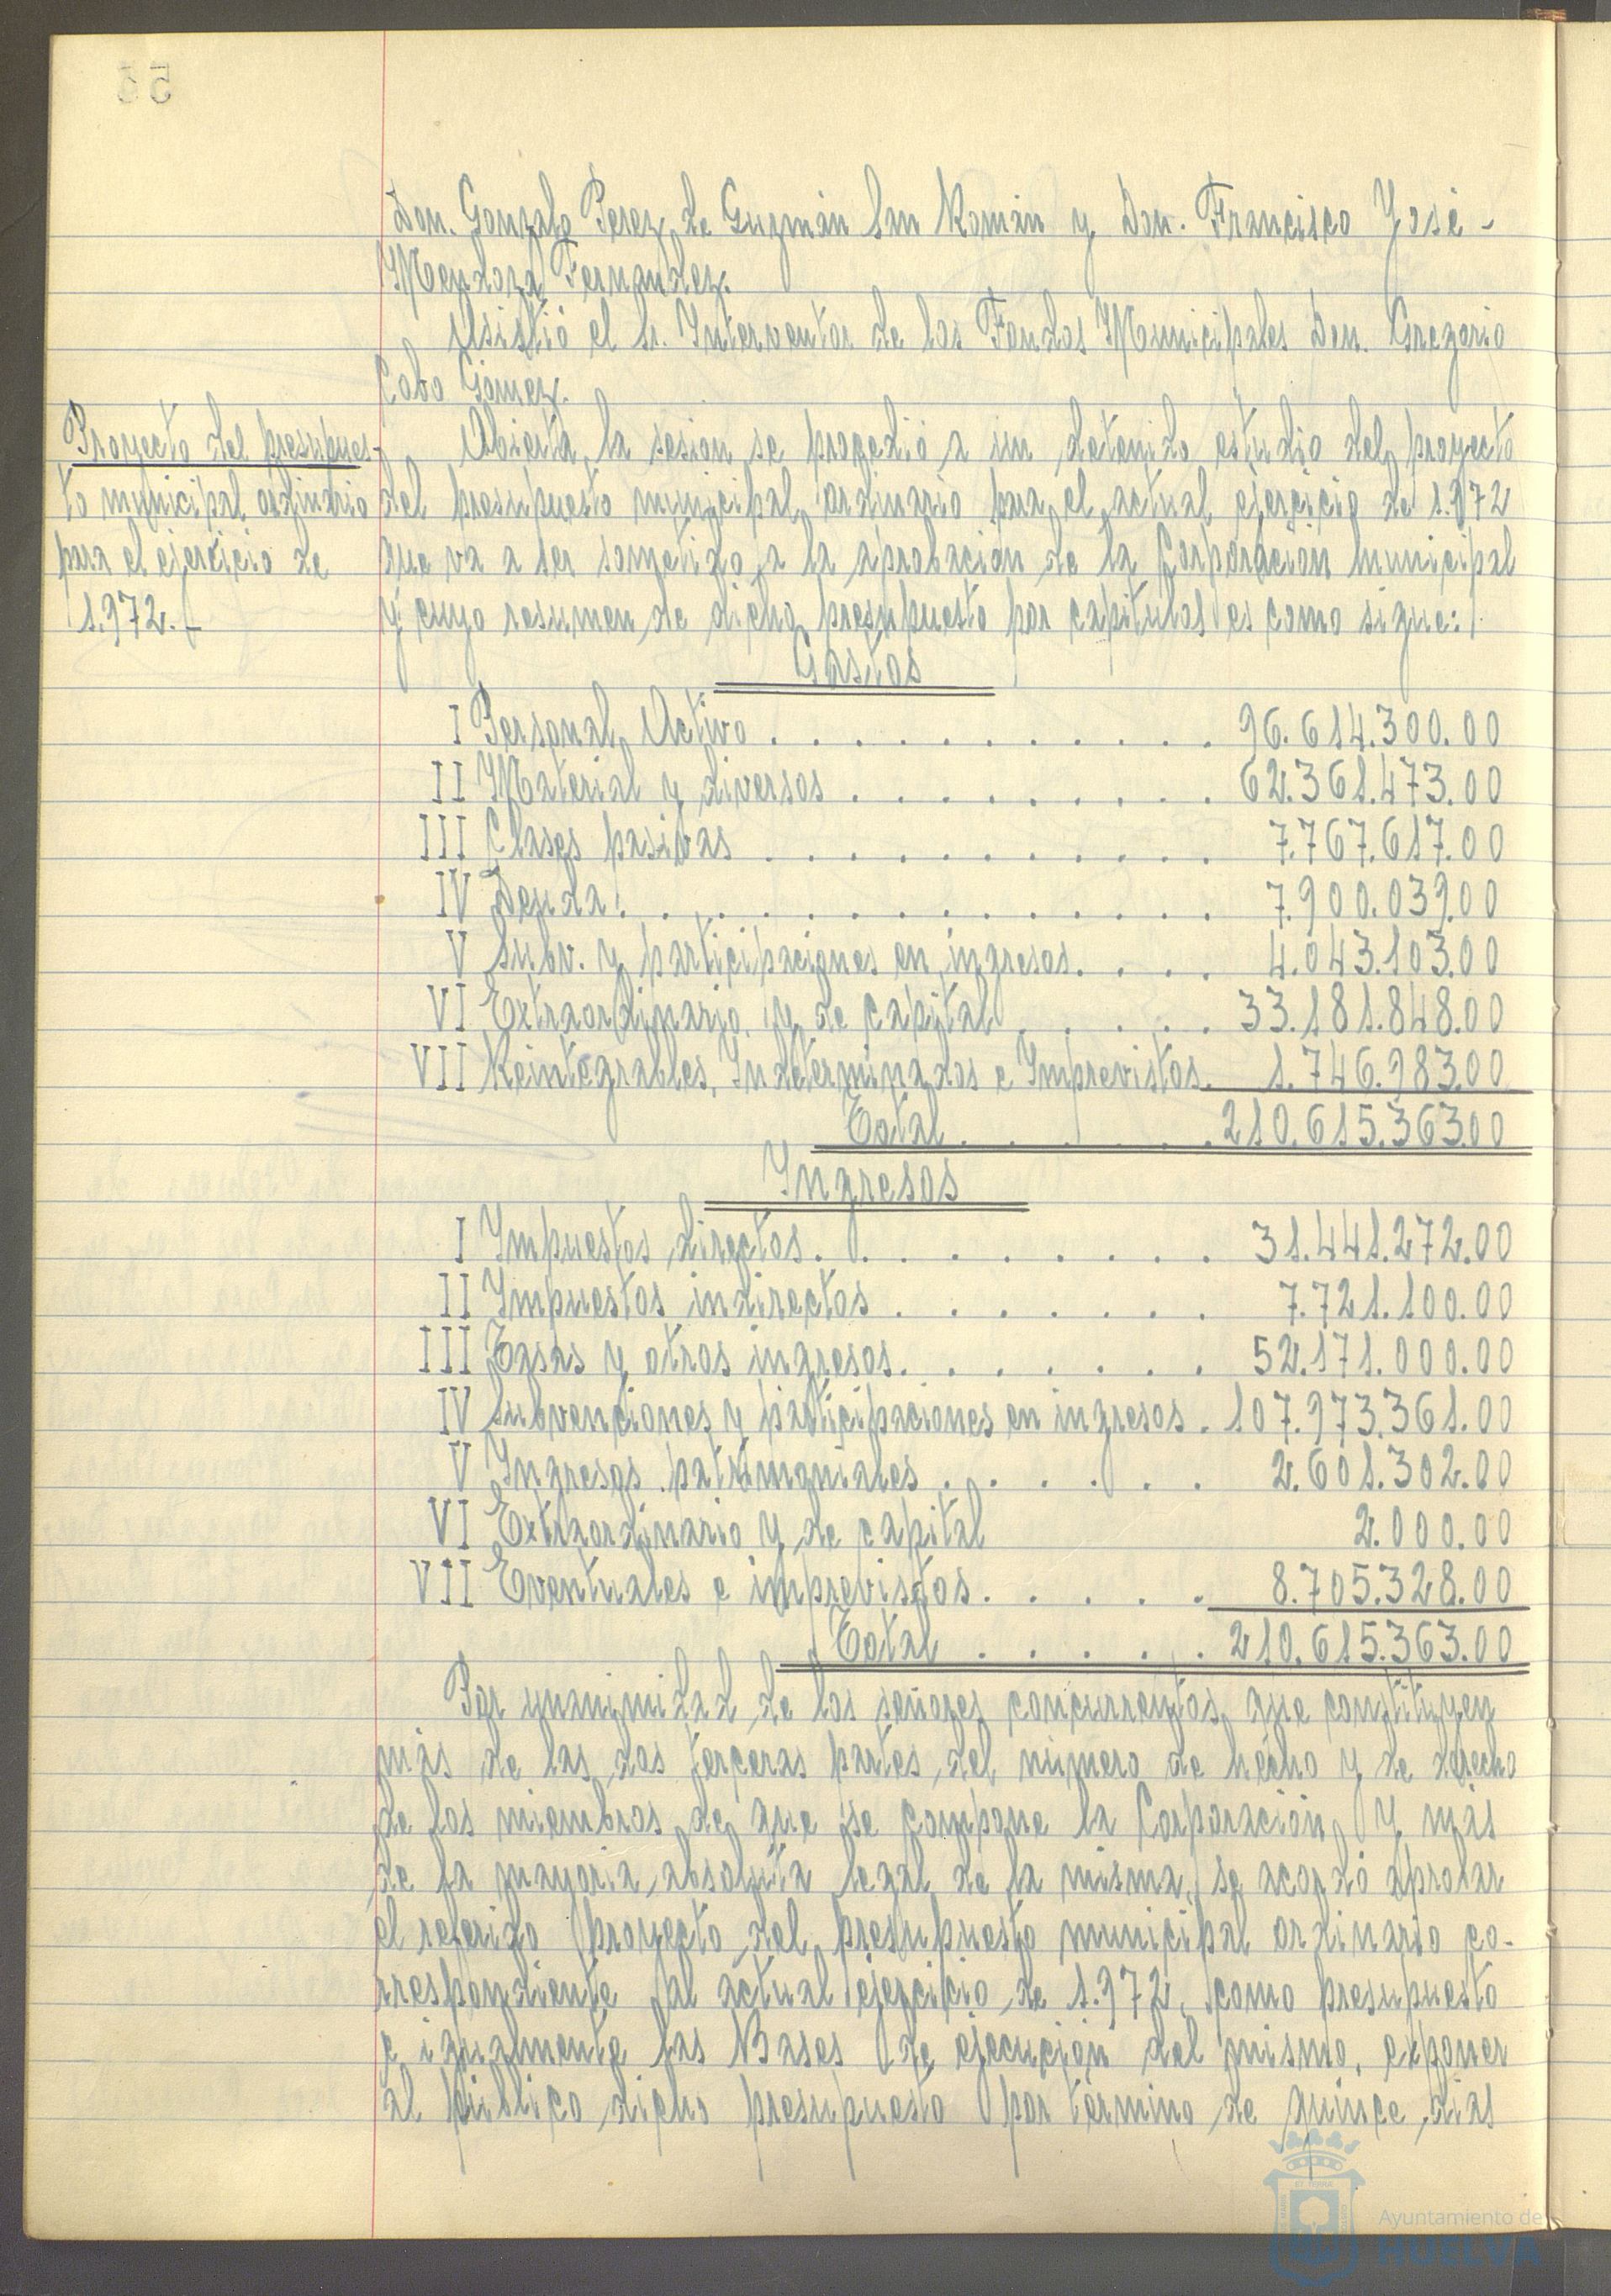 Don. Gonzalo Perez de Guzmán San Román y Don. Francisco José -
Mendoza Fernandez.
Asistió el Sr. Interventor de los Fondos Municipales Don. Gregorio
Cobo Gómez.
Proyecto del presupues-
to municipal ordinario
para el ejercicio de
1.972.-
Abierta la sesion se procedió a un detenido estudio del proyecto
del presupuesto municipal ordinario para el actual ejercicio de 1.972
que va a ser sometido a la aprobación de la Corporación Municipal
y cuyo resumen de dicho presupuesto por capitulos es como sigue:
Gastos
I Personal Activo . . . . . . . . . . . 96.614.300.00
II Material y diversos . . . . . . . . . 62.361.473.00
III Clases pasivas . . . . . . . . . . . 7.767.617.00
IV Deuda . . . . . . . . . . . . . . 7.900.039.00
V Subv. y participaciones en ingresos. . . . 4.043.103.00
VI Extraordinario y de capital . . . . . 33.181.848.00
VII Reintegrables, Indeterminados e Imprevistos. 1.746.983.00
Total . . . . . 210.615.363.00
Ingresos
I Impuestos directos. . . . . . . . . 31.441.272.00
II Impuestos indirectos . . . . . . . 7.721.100.00
III Tasas y otros ingresos. . . . . . . 52.171.000.00
IV Subvenciones y participaciones en ingresos . 107.973.361.00
V Ingresos patrimoniales . . . . . . 2.601.302.00
VI Extraordinario y de capital 2.000.00
VII Eventuales e imprevistos. . . . . 8.705.328.00
Total . . . . . 210.615.363.00
Por unanimidad de los señores concurrentos, que constituyen
más de las dos terceras partes del número de hecho y de derecho
de los miembros de que se compone la Corporación, y más
de la mayoria absoluta legal de la misma, se acordó aprobar
el referido proyecto del presupuesto municipal ordinario co-
rrespondiente al actual ejercicio de 1.972, como presupuesto
e igualmente las Bases de ejecución del mismo, exponer
al público dicho presupuesto por término de quince dias
Ayuntamiento de
HUELVA